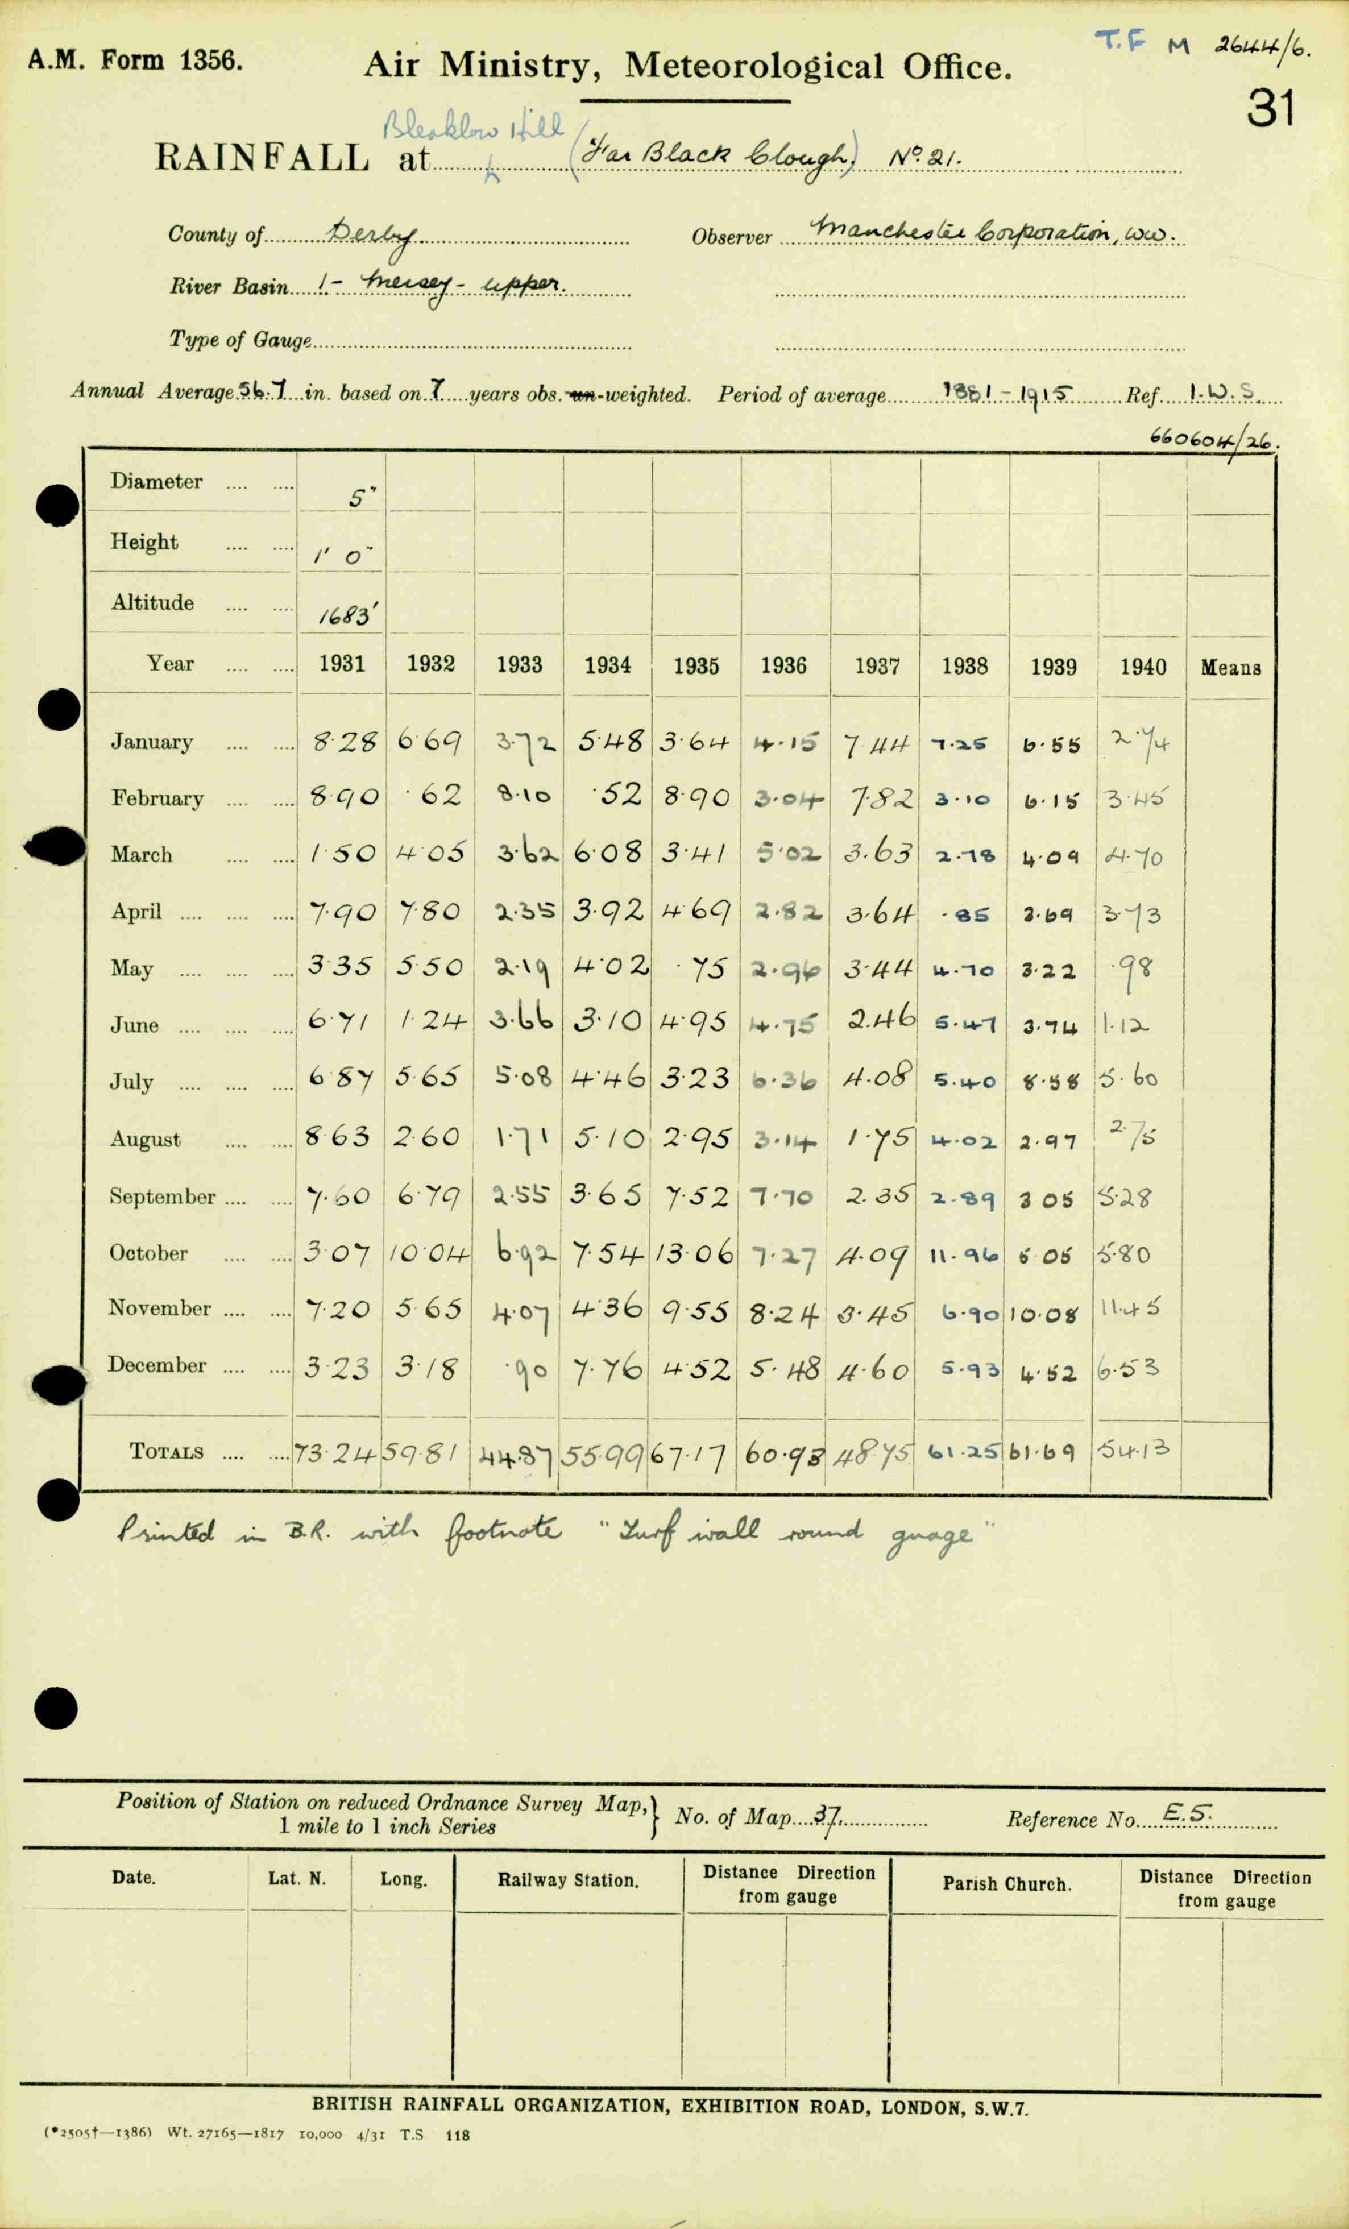 T.F M 2644/6.
A.M. Form 1356. Air Ministry, Meteorological Office.
31
Bleaklow Hill
RAINFALL at (Far Black Clough) No. 21.
County of Derby Observer Manchester Corporation, WW.
River Basin 1 - Mersey - upper.
Type of Gauge
Annual Average 56.7 in. based on 7 years obs. un-weighted. Period of average 1881-1915 Ref. I.W.S.
660604/26.
Diameter 5"
Height 1' 0"
Altitude 1683'
Year 1931 1932 1933 1934 1935 1936 1937 1938 1939 1940 Means
January 8.28 6.69 3.72 5.48 3.64 4.15 7.44 7.25 6.55 2.74
February 8.90 .62 8.10 .52 8.90 3.04 7.82 3.10 6.15 3.45
March 1.50 4.05 3.62 6.08 3.41 5.02 3.63 2.78 4.09 4.70
April 7.90 7.80 2.35 3.92 4.69 2.82 3.64 .85 3.69 3.73
May 3.35 5.50 2.19 4.02 .75 2.96 3.44 4.70 3.22 .98
June 6.71 1.24 3.66 3.10 4.95 4.75 2.46 5.47 3.74 1.12
July 6.87 5.65 5.08 4.46 3.23 6.36 4.08 5.40 8.58 5.60
August 8.63 2.60 1.71 5.10 2.95 3.14 1.75 4.02 2.97 2.75
September 7.60 6.79 2.55 3.65 7.52 7.70 2.35 2.89 3 05 5.28
October 3.07 10.04 6.92 7.54 13.06 7.27 4.09 11.96 5 05 5.80
November 7.20 5.65 4.07 4.36 9.55 8.24 3.45 6.90 10.08 11.45
December 3.23 3.18 .90 7.76 4.52 5.48 4.60 5.93 4.52 6.53
TOTALS 73.24 59.81 44.87 55.99 67.17 60.93 48.75 61.25 61.69 54.13
Printed in B.R. with footnote "Turf wall round guage"
Position of Station on reduced Ordnance Survey Map, 1 mile to 1 inch Series } No. of Map 37. Reference No. E.5.
Date. Lat. N. Long. Railway Station. Distance Direction from gauge Parish Church. Distance Direction from gauge
BRITISH RAINFALL ORGANIZATION, EXHIBITION ROAD, LONDON, S.W.7.
(*2505†—1386) Wt. 27165—1817 10,000 4/31 T.S 118